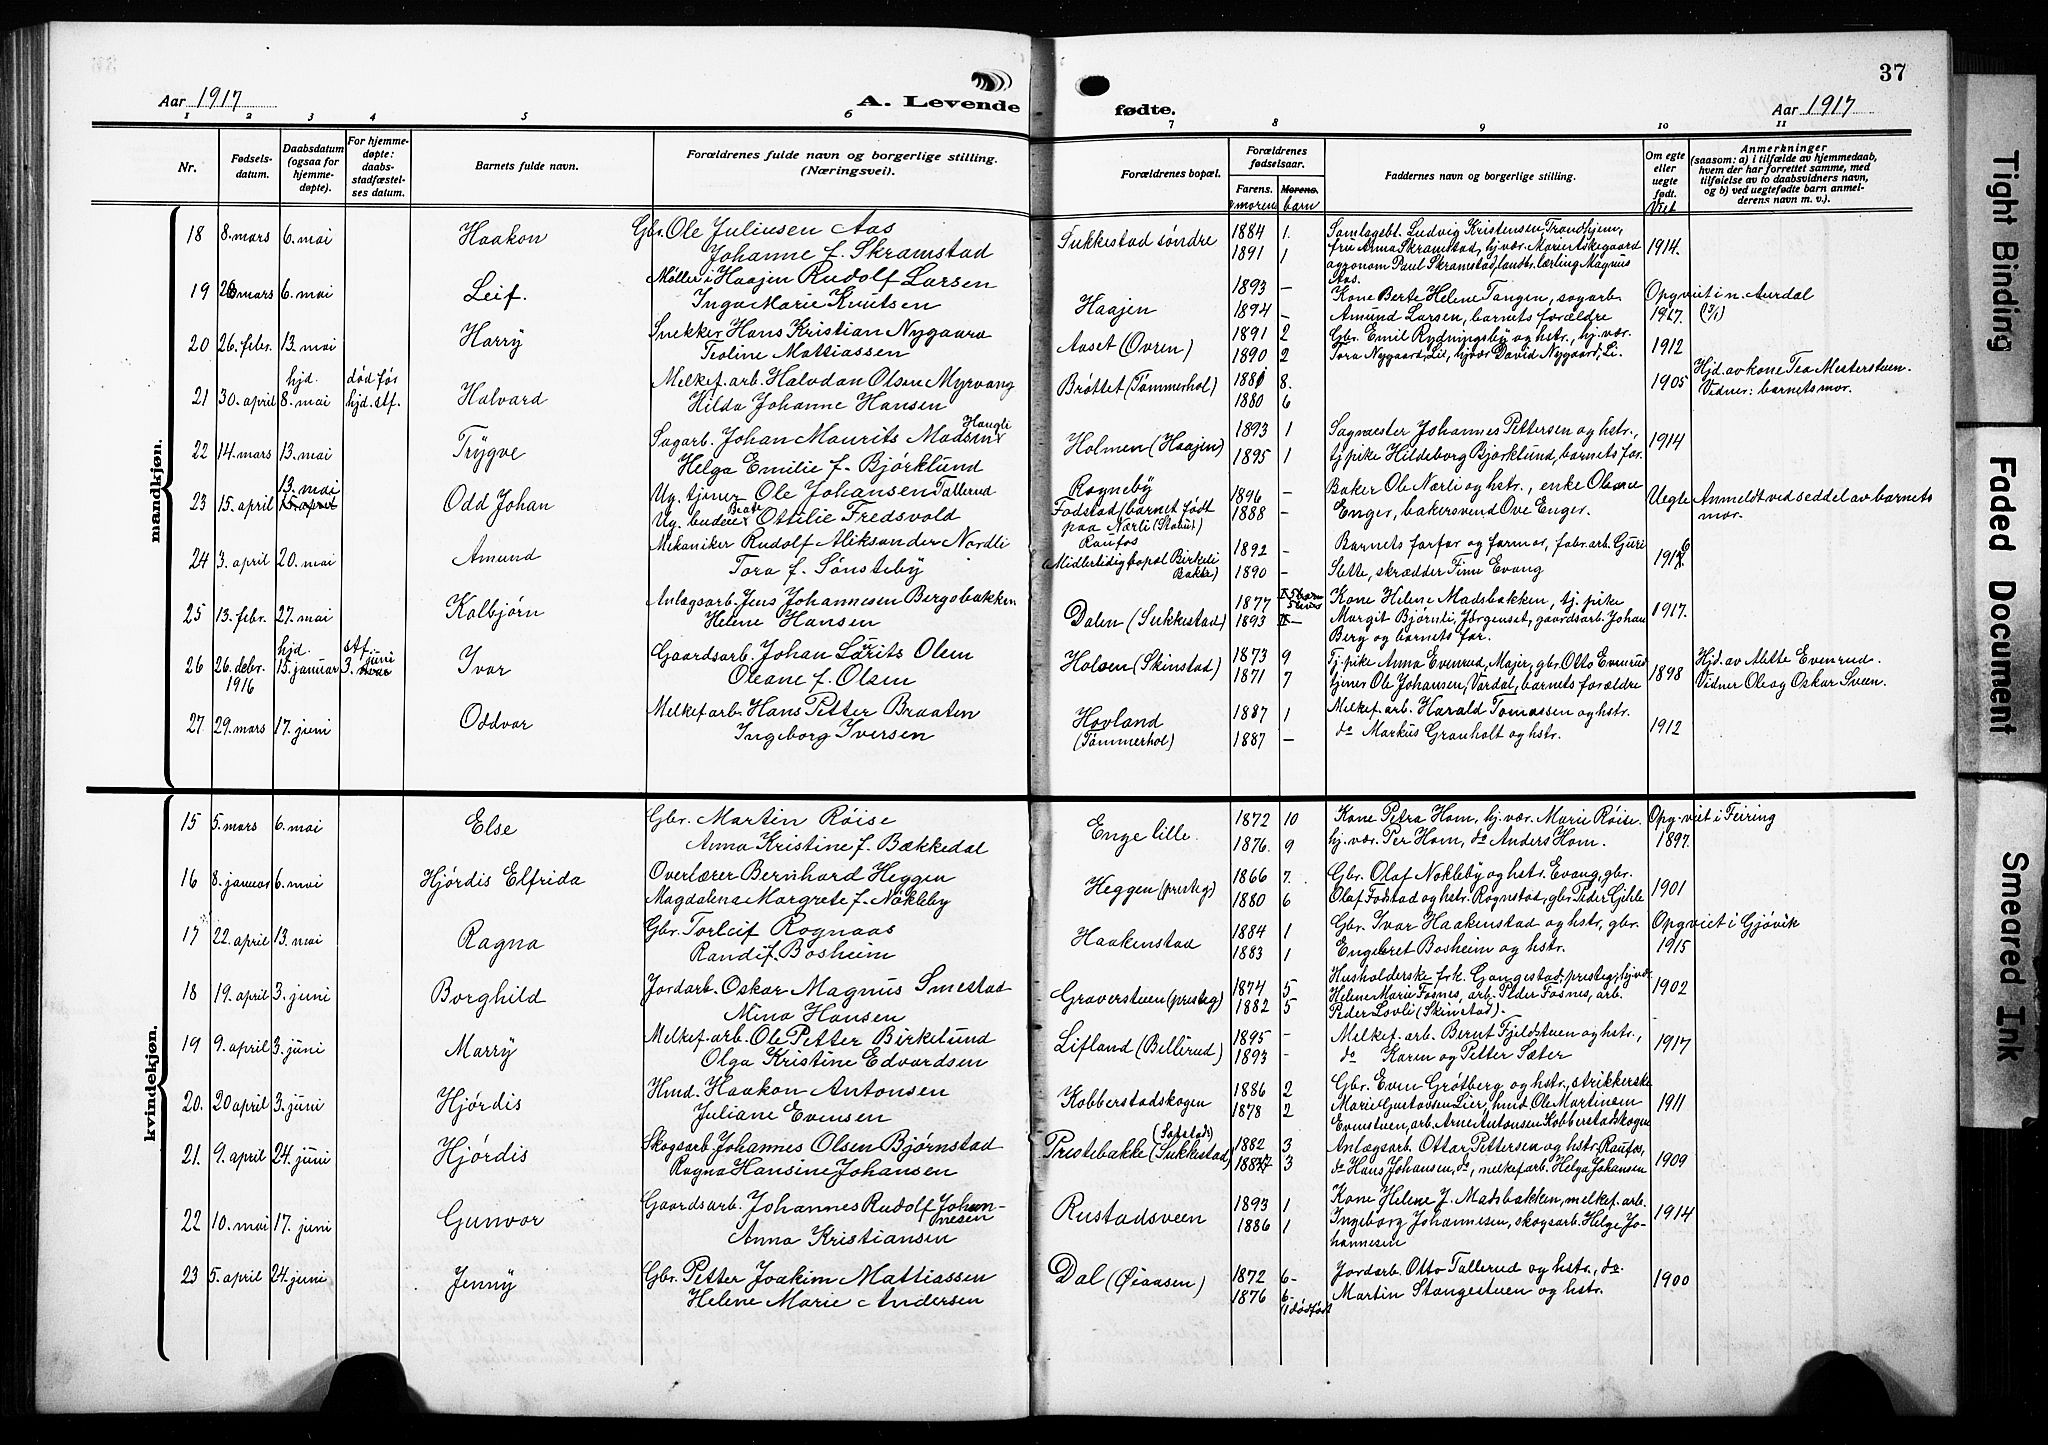 37
Aar 1917
A. Levende
fødte.
Aar 1917
1 2 3 4 5 6 7 8 9 10 11
Nr.
Fødsels-
datum.
Daabsdatum
(ogsaa for
hjemme-
døpte).
For hjemme-
døpte:
daabs-
stadfæstel-
ses datum.
Barnets fulde navn.
Forældrenes fulde navn og borgerlige stilling.
(Næringsvei).
Forældrenes bopæl.
Forældrenes
fødselsaar.
Farens. Morens.
morens barn
Faddernes navn og borgerlige stilling.
Om egte
eller
uegte
født.
Viet
Anmerkninger
(saasom: a) i tilfælde av hjemmedaab,
hvem der har forrettet samme, med
tilføielse av to daabsvidners navn,
og b) ved uegtefødte barn anmel-
derens navn m. v.).
mandkjøn.
18 8. mars 6. mai Haakon
Gbr. Ole Juliusen Aas
Johanne f. Skramstad
Sukkestad søndre
1884 1.
1891 1
Samlagsbt. Ludvig Kristensen, Trondhjem,
fru Anna Skramstad, hj.vær. Marie Askegaard
agronom Paul Skramstad, landbr. lærling Magnus
Aas.
1914.
19 28 mars 6. mai Leif.
Møller i Haajen Rudolf Larsen
Inga Marie Knutsen
Haajen
1893 –
1894 –
Kone Berte Helene Tangen, sagarb.
Amund Larsen, barnets forældre
Opg. viet i n. Aurdal
1917. (3/1)
20 26. febr. 13. mai Harry
Snekker Hans Kristian Nygaard
Teoline Mattiassen
Aaset (Øvren)
1891 2
1890 2
Gbr. Emil Rydningsby og hstr., hj. vær.
Tora Nygaard, Lie, hj.vær David Nygaard, Li.
1912
21 30. april hjd. 8. mai død før hjd. stf. Halvard
Melkef. arb. Halvdan Olsen Myrvang
Hilda Johanne Hansen
Brøttet (Tømmerhol)
1881 8.
1880 6
1905
Hjd. av kone Tea Mestersteen.
Vidner: barnets mor.
22 14. mars 13. mai Trygve
Sagarb. Johan Maurits Madsen Haugli
Helga Emilie f. Bjørklund
Holmen (Haajen)
1893 1
1895 1
Sagmester Johannes Pettersen og hstr.,
tj. pike Hildeborg Bjørklund, barnets far.
1914
23 15. april 13. mai Odd Johan
Ug. tjener Ole Johansen Tallerud
Ug. budeie Beate Ottilie Fredsvold
Rogneby
Fodstad (barnet født
paa Nærli (Skabu)
1896 –
1888 –
Baker Ole Nærli og hstr., enke Oleane
Enger, bakersvend Ove Enger.
Uegte
Anmeldt ved seddel av barnets
mor.
24 3. april 20. mai Amund
Mekaniker Rudolf Aleksander Nordli
Tora f. Sønsteby
Raufos
(Midlertidig bopæl Birkeli
Bakke)
1892 –
1890 –
Barnets farfar og farmor, fabr. arb. Guri
Slette, skrædder Finn Evang
1916
25 13. febr. 27. mai Kolbjørn
Anlægsarb. Jens Johannesen Bergsbakken
Helene Hansen
Dalen (Sukkestad)
1877
1893
Kone Helene Madsbakken, tj. pike
Margit Bjørnli, Jørgenset, gaardsarb. Johan
Berg og barnets far.
1917.
26 26. debr. 1916 hjd. 15. januar stf. 3. juni Ivar
Gaardsarb. Johan Laurits Olsen
Oleane f. Olsen
Holsen (Skinstad)
1873 9
1871 7
Tj. pike Anna Evenrud, Majer, gbr. Otto Evenrud
tjener Ole Johansen, Vardal, barnets forældre
1898
Hjd. av Mette Evenrud.
Vidner Ole og Oskar Sveen.
27 29. mars 17. juni Oddvar
Melkef. arb. Hans Petter Braaten
Ingeborg Iversen
Hovland
(Tømmerhol)
1887 1
1887 –
Melkef. arb. Harald Tomassen og hstr.
do Markus Granholt og hstr.
1912
kvindekjøn.
15 5. mars 6. mai Else
Gbr. Martin Røise
Anna Kristine f. Bækkedal
Enge lille.
1872 10
1876. 9
Kone Petra Hom, hj. vær. Marie Røise.
hj. vær. Per Hom, do Anders Hom.
Opg. viet i Feiring
1897.
16 8. januar 6. mai Hjørdis Elfrida
Overlærer Bernhard Heggen
Magdalena Margrete f. Nøkleby
Heggen (presteg)
1866 7.
1880 6
Gbr. Olaf Nøkleby og hstr. Evang, gbr.
Olaf Fodstad og hstr. Rognstad, gbr Peder Gihle
1901
17 22. april 13. mai Ragna
Gbr. Torleif Rognaas
Randi f. Bosheim
Haakenstad
1884 1
1883 1
Gbr. Ivar Haakenstad og hstr., gbr.
Engebret Bosheim og hstr.
Opg. viet i Gjøvik
1915
18 19. april 3. juni Borghild
Jordarb. Oskar Magnus Smestad
Mina Hansen
Graversteen (presteg)
1874 5
1882 5
Husholderske frk. Gangestad, presteg., hj.vær.
Helene Marie Fosnes, arb. Peder Fosnes, arb.
Peder Lovli (Skinstad).
1902
19 9. april 3. juni Marry
Melkef. arb. Ole Petter Birkelund
Olga Kristine Edvardsen
Lifland (Bellerud)
1895 –
1893 –
Melkef. arb. Bernt Fjeldstuen og hstr.,
do Karin og Petter Sæter
1917
20. 20 april 3. juni Hjørdis
Hmd. Haakon Antonsen
Juliane Evensen
Kobberstadskogen
1886 2
1878 2
Gbr. Even Grøtberg og hstr., strikkerske
Marie Gustavsen Lier, hmd. Ole Martinsen
Evenstuen, arb. Arne Antonsen Kobberstadskogen
1911
21. 9. april 24. juni Hjørdis
Skogsarb. Johannes Olsen Bjørnstad
Ragna Hansine Johansen
Prestebakke (Sukkestad)
1882 3
1887 3
Anlægsarb. Ottar Pettersen og hstr, Raufos,
do Hans Johansen, do, melkef.arb. Helga Johansen
1909
22 10. mai 17. juni Gunvor
Gaardsarb. Johannes Rudolf Johan-
nesen
Anna Kristiansen
Rustadsveen
1893 1
1886 1
Kone Helene J. Madsbakken, melkef. arb.
Ingeborg Johannesen, skogsarb. Helge Jo-
hannesen
1914
23 5. april 24. juni Jenny
Gbr. Petter Joakim Mattiassen
Helene Marie Andersen
Dal (Øiaasen)
1872 6–
1876 6–
1 dødfødt
Jordarb. Otto Tallerud og hstr., do.
Martin Stangestuen og hstr.
1900
Tight Binding
Faded Document
Smeared Ink